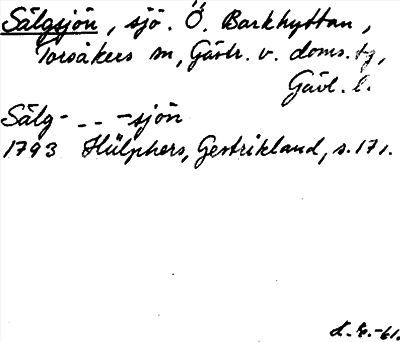 Sälgsjön, sjö. Ö. Barkhyttan,
Torsåkers sn, Gästr. v. doms. tg,
Gävl. l.
Sälg- - - -sjön
1793 Hülphers, Gestrikland, s. 171.
-61.